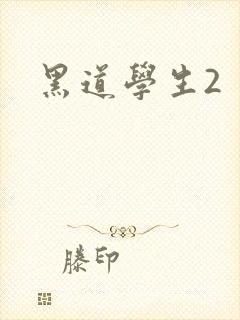 黑道學生2
滕印